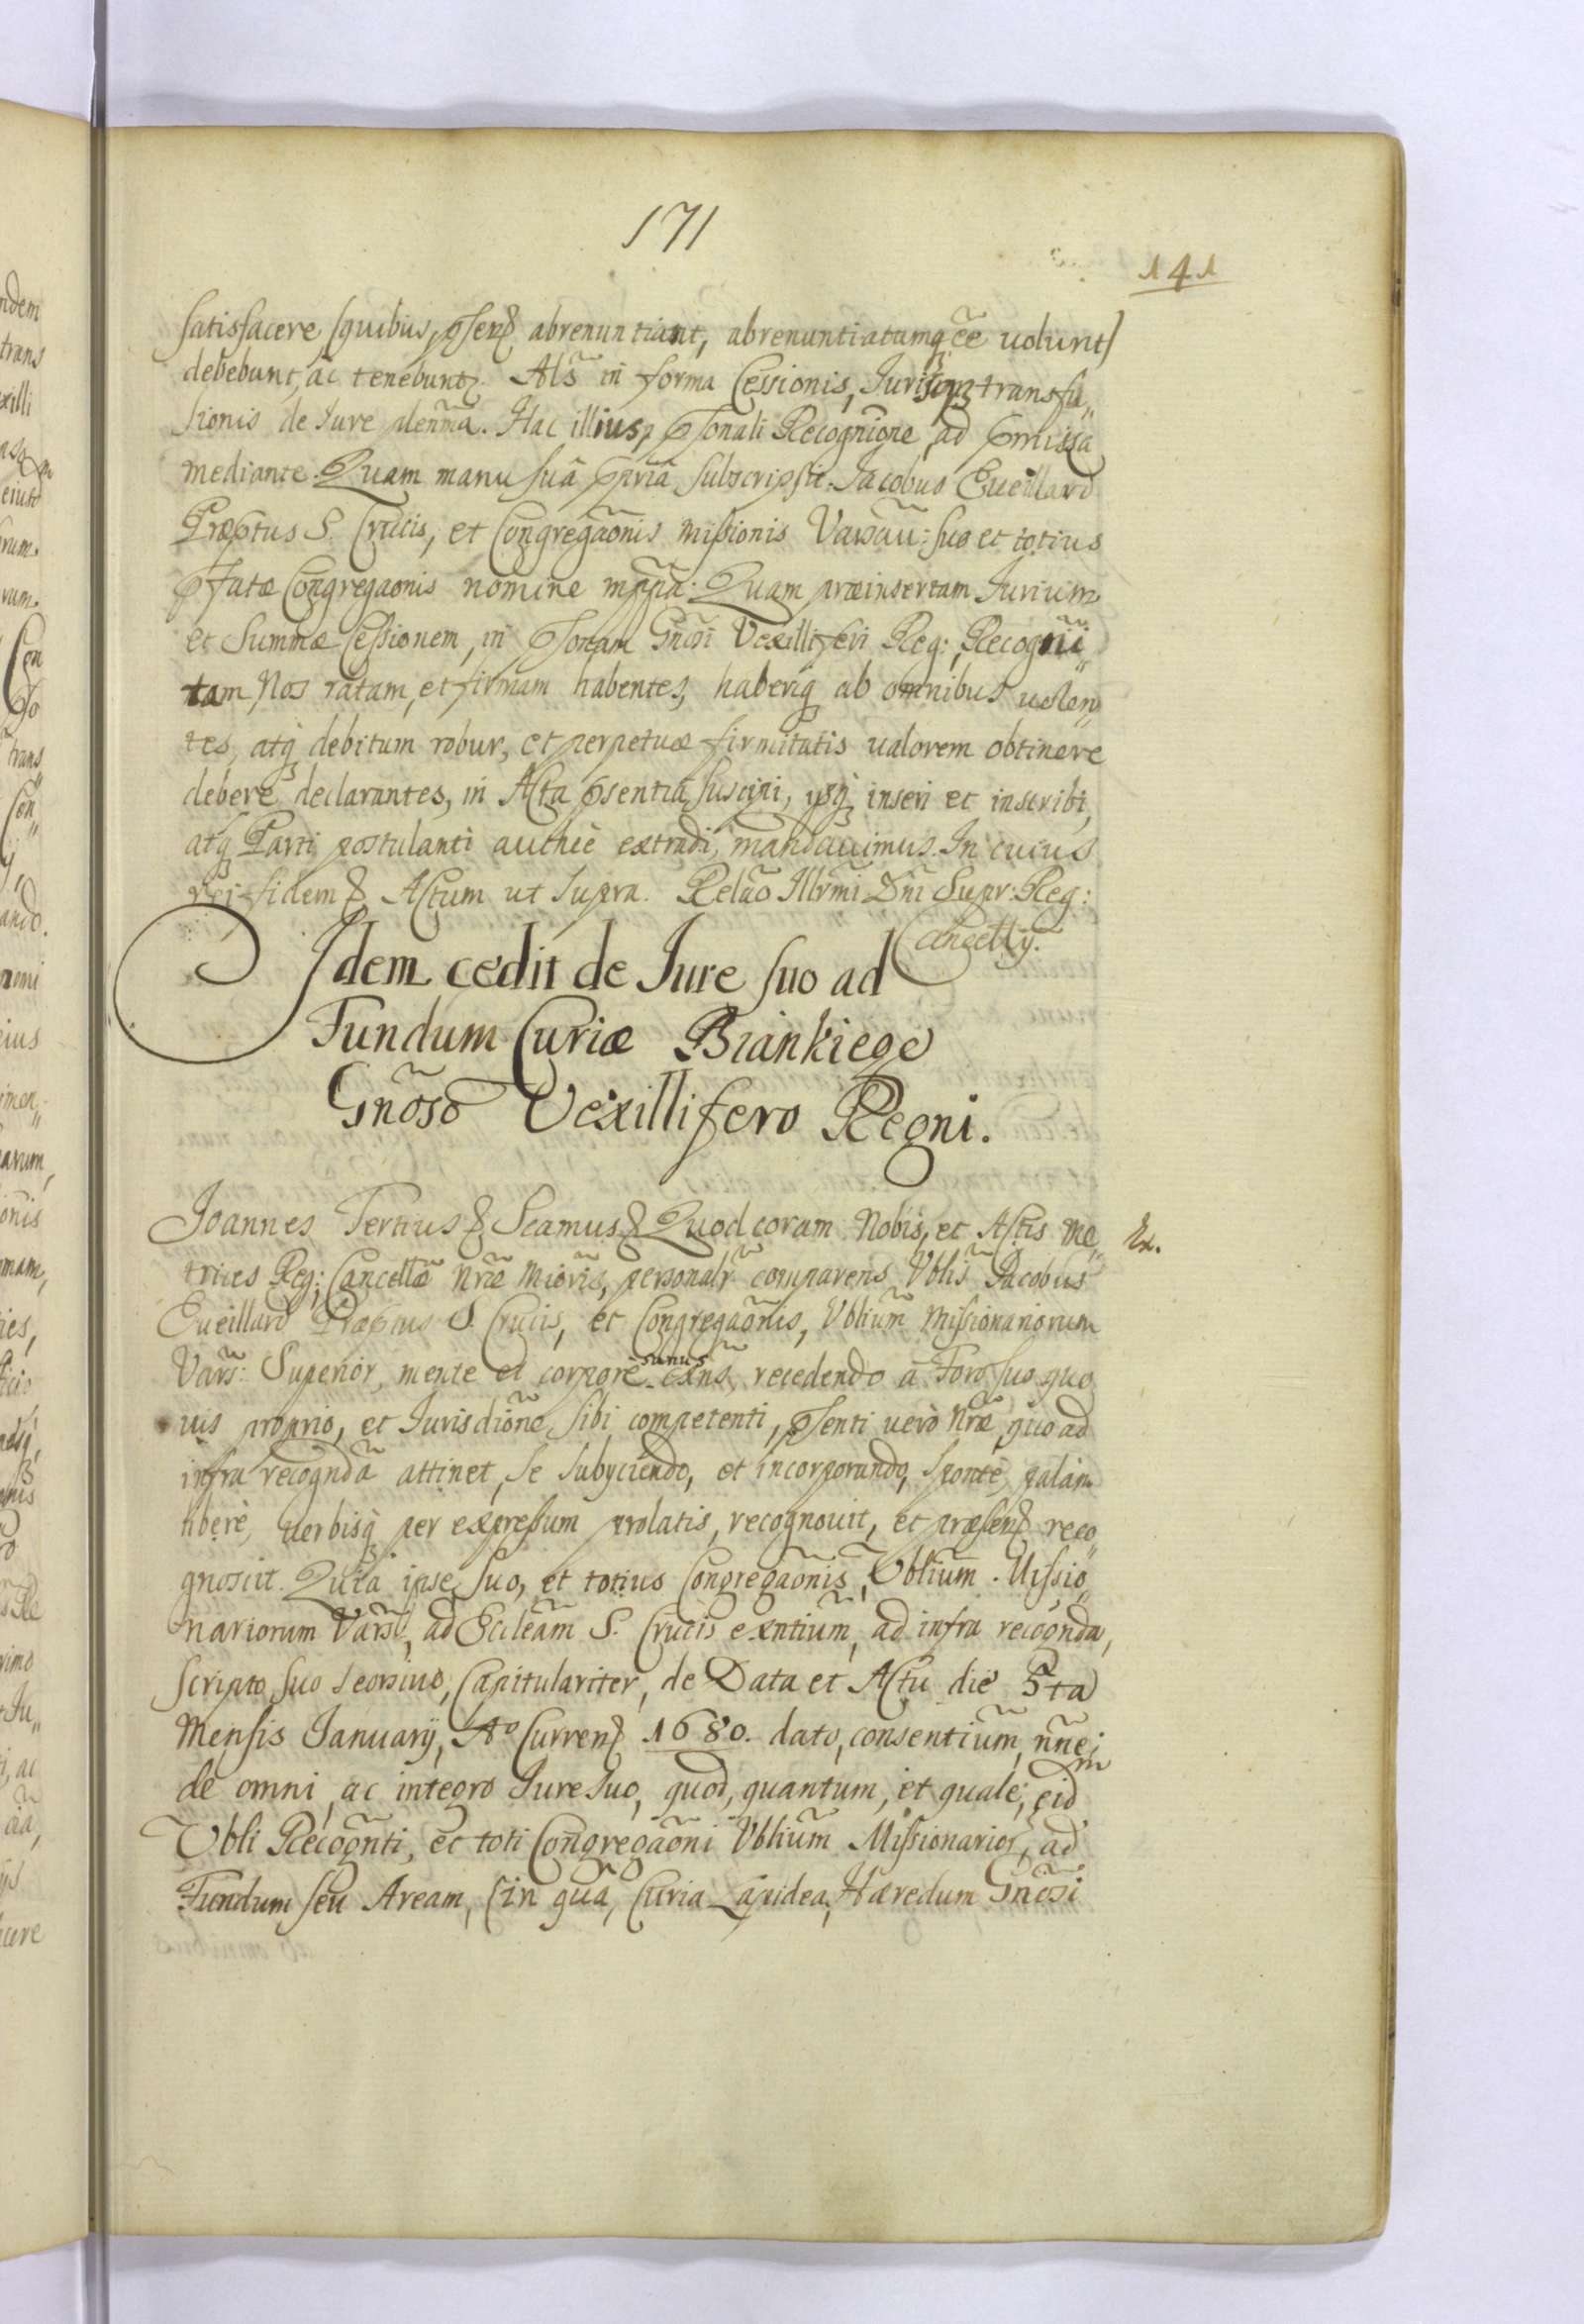 171
141
satisfacere (quibus, psenꝭ abrenuntiant, abrenuntiatumq̃ eẽ uolunt)
debebunt, ac tenebuntꝛ. Als̃ in forma Cessionis, Jurisqꝫ transfu„
sionis de Jure denm̃a. Hac illius, psonali Recognic̃ne ad pmissa
mediante. Quam manu suâ ppriâ subscripsit. Jacobus Eueillard
Præptus S. Crucis, et Congregaõnis Missionis Varsau̅: suo et totius
pfatæ Congregaonis nomine mppa. Quam præinsertam Jurium
et Summæ Cessionem, in psonam Gnõsi Vexilliferi Reg:, Recogni„
tam Nos ratam, et firmam habentes, haberiq̃ ab omnibus uolen„
tes, atq̃ debitum robur, et perpetuæ firmitatis ualorem obtinere
debere declarantes, in Acta psentia suscipi, ysq̃ inseri et inscribi,
atq̃ Parti postulanti authẽ extradi, mandauimus. In cuius
rei fidem ꝭ Actum ut supra. Relaõ Illrm̃i Dñi Supr: Reg:
Cancellÿ.
Idem cedit de Jure suo ad
Fundum Curiæ Biankiego
Gnõso Vexillifero Regni.
Joannes Tertius ꝭ Scamus ꝭ Quod coram Nobis, et Actis Me„
Ex.
trices Reg: Cancellæ Nræ Mioris, personalr̃ comparens Vblis Jacobus
Eueillard Præptus S. Crucis, et Congregaõnis, Vblium̃ Missionariorum
Vars̃: Superior, mente et corpore sanus exñs, recedendo à Foro suo quo
uis proprio, et Jurisdiõne sibi competenti, psenti uerò Nr̃æ, quo ad
infra recogndã attinet, se subyciendo, et incorporando, sponte, palàm
liberè, uerbisq̃ per expressum prolatis, recognouit, et præsenꝭ reco„
gnoscit. Quia ipse suo, et totius Congregaõnis, Vblium̃ Missio„
nariorum Vars̃, ad Eccleãm S. Crucis exntium̃, ad infra recognda,
scripto suo seorsiuo, Capitulariter, de Data et Actu die 5ta
Mensis January, Aº Currenꝭ 1680. dato, consentium̃, nñe,
de omni, ac integro Jure suo, quod, quantum, et quale, eidᵐ
Vbli Recognti, et toti Congregaõni Vblium̃ Missionarioꝝ, ad
Fundum seu Aream, (in qua, Curia Lapidea, Hæredum Gnõsi